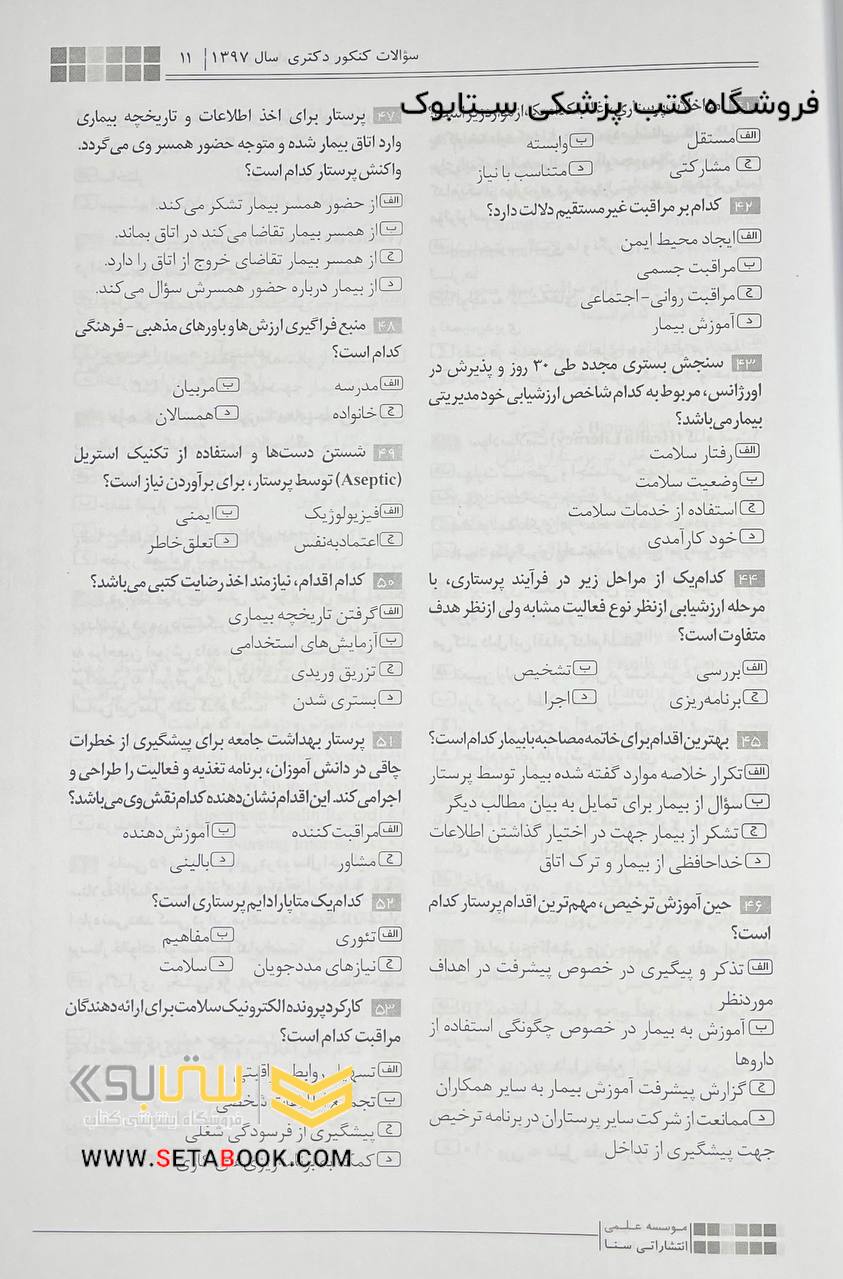 سؤالات کنکور دکتری سال ۱۳۹۷ | ۱۱
فروشگاه کتب پزشکی ستابوک
الف مستقل
ب وابسته
ج مشارکتی
د متناسب با نیاز
۴۲ کدام بر مراقبت غیرمستقیم دلالت دارد؟
الف ایجاد محیط ایمن
ب مراقبت جسمی
ج مراقبت روانی-اجتماعی
د آموزش بیمار
۴۳ سنجش بستری مجدد طی ۳۰ روز و پذیرش در
اورژانس، مربوط به کدام شاخص ارزشیابی خود مدیریتی
بیمار می‌باشد؟
الف رفتار سلامت
ب وضعیت سلامت
ج استفاده از خدمات سلامت
د خود کارآمدی
۴۴ کدام‌یک از مراحل زیر در فرآیند پرستاری، با
مرحله ارزشیابی ازنظر نوع فعالیت مشابه ولی ازنظر هدف
متفاوت است؟
الف بررسی
ب تشخیص
ج برنامه‌ریزی
د اجرا
۴۵ بهترین اقدام برای خاتمه مصاحبه با بیمار کدام است؟
الف تکرار خلاصه موارد گفته شده بیمار توسط پرستار
ب سؤال از بیمار برای تمایل به بیان مطالب دیگر
ج تشکر از بیمار جهت در اختیار گذاشتن اطلاعات
د خداحافظی از بیمار و ترک اتاق
۴۶ حین آموزش ترخیص، مهم‌ترین اقدام پرستار کدام
است؟
الف تذکر و پیگیری در خصوص پیشرفت در اهداف
موردنظر
ب آموزش به بیمار در خصوص چگونگی استفاده از
داروها
ج گزارش پیشرفت آموزش بیمار به سایر همکاران
د ممانعت از شرکت سایر پرستاران در برنامه ترخیص
جهت پیشگیری از تداخل
۴۷ پرستار برای اخذ اطلاعات و تاریخچه بیماری
وارد اتاق بیمار شده و متوجه حضور همسر وی می‌گردد.
واکنش پرستار کدام است؟
الف از حضور همسر بیمار تشکر می‌کند.
ب از همسر بیمار تقاضا می‌کند در اتاق بماند.
ج از همسر بیمار تقاضای خروج از اتاق را دارد.
د از بیمار درباره حضور همسرش سؤال می‌کند.
۴۸ منبع فراگیری ارزش‌ها و باورهای مذهبی - فرهنگی
کدام است؟
الف مدرسه
ب مربیان
ج خانواده
د همسالان
۴۹ شستن دست‌ها و استفاده از تکنیک استریل
(Aseptic) توسط پرستار، برای برآوردن نیاز است؟
الف فیزیولوژیک
ب ایمنی
ج اعتمادبه‌نفس
د تعلق خاطر
۵۰ کدام اقدام، نیازمند اخذ رضایت کتبی می‌باشد؟
الف گرفتن تاریخچه بیماری
ب آزمایش‌های استخدامی
ج تزریق وریدی
د بستری شدن
۵۱ پرستار بهداشت جامعه برای پیشگیری از خطرات
چاقی در دانش آموزان، برنامه تغذیه و فعالیت را طراحی و
اجرا می‌کند. این اقدام نشان‌دهنده کدام نقش وی می‌باشد؟
الف مراقبت‌کننده
ب آموزش‌دهنده
ج مشاور
د بالینی
۵۲ کدام‌یک متاپارادایم پرستاری است؟
الف تئوری
ب مفاهیم
ج نیازهای مددجویان
د سلامت
۵۳ کارکرد پرونده الکترونیک سلامت برای ارائه‌دهندگان
مراقبت کدام است؟
الف تسهیل روابط مراقبتی
ب شخصی
ج پیشگیری از فرسودگی شغلی
د
ستابوک
فروشگاه اینترنتی کتاب
WWW.SETABOOK.COM
موسسه علمی
انتشاراتی سنا